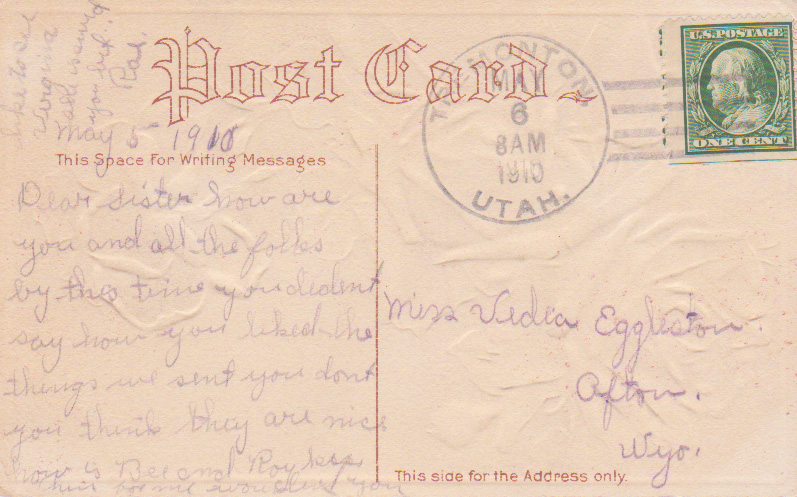 Post Card
TREMONTON,
MAY
6
8 AM
1910
UTAH.
U.S. POSTAGE
ONE CENT
May 5 1910
This Space For Writing Messages
Dear Sister how are
you and all the folks
by this time you dident
say how you liked the
things we sent you dont
you think they are nice
how is Bee and Roy
for me wouldent you
like to see
you
Miss Vedia Eggleston.
Afton.
Wyo.
This side for the Address only.